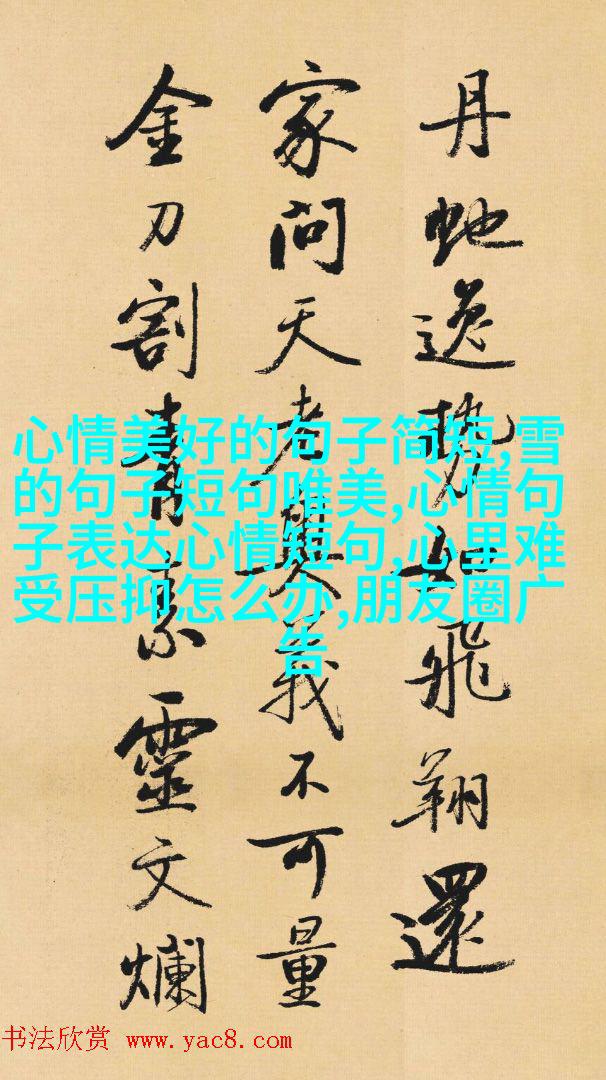 丹虵逸勢如飛翔還
家問天老奧義不可量
金刀割青素靈文爛
心情美好的句子简短,雪
的句子短句唯美,心情句
子表达心情短句,心里难
受压抑怎么办,朋友圈广
告
书法欣赏 www.yac8.com